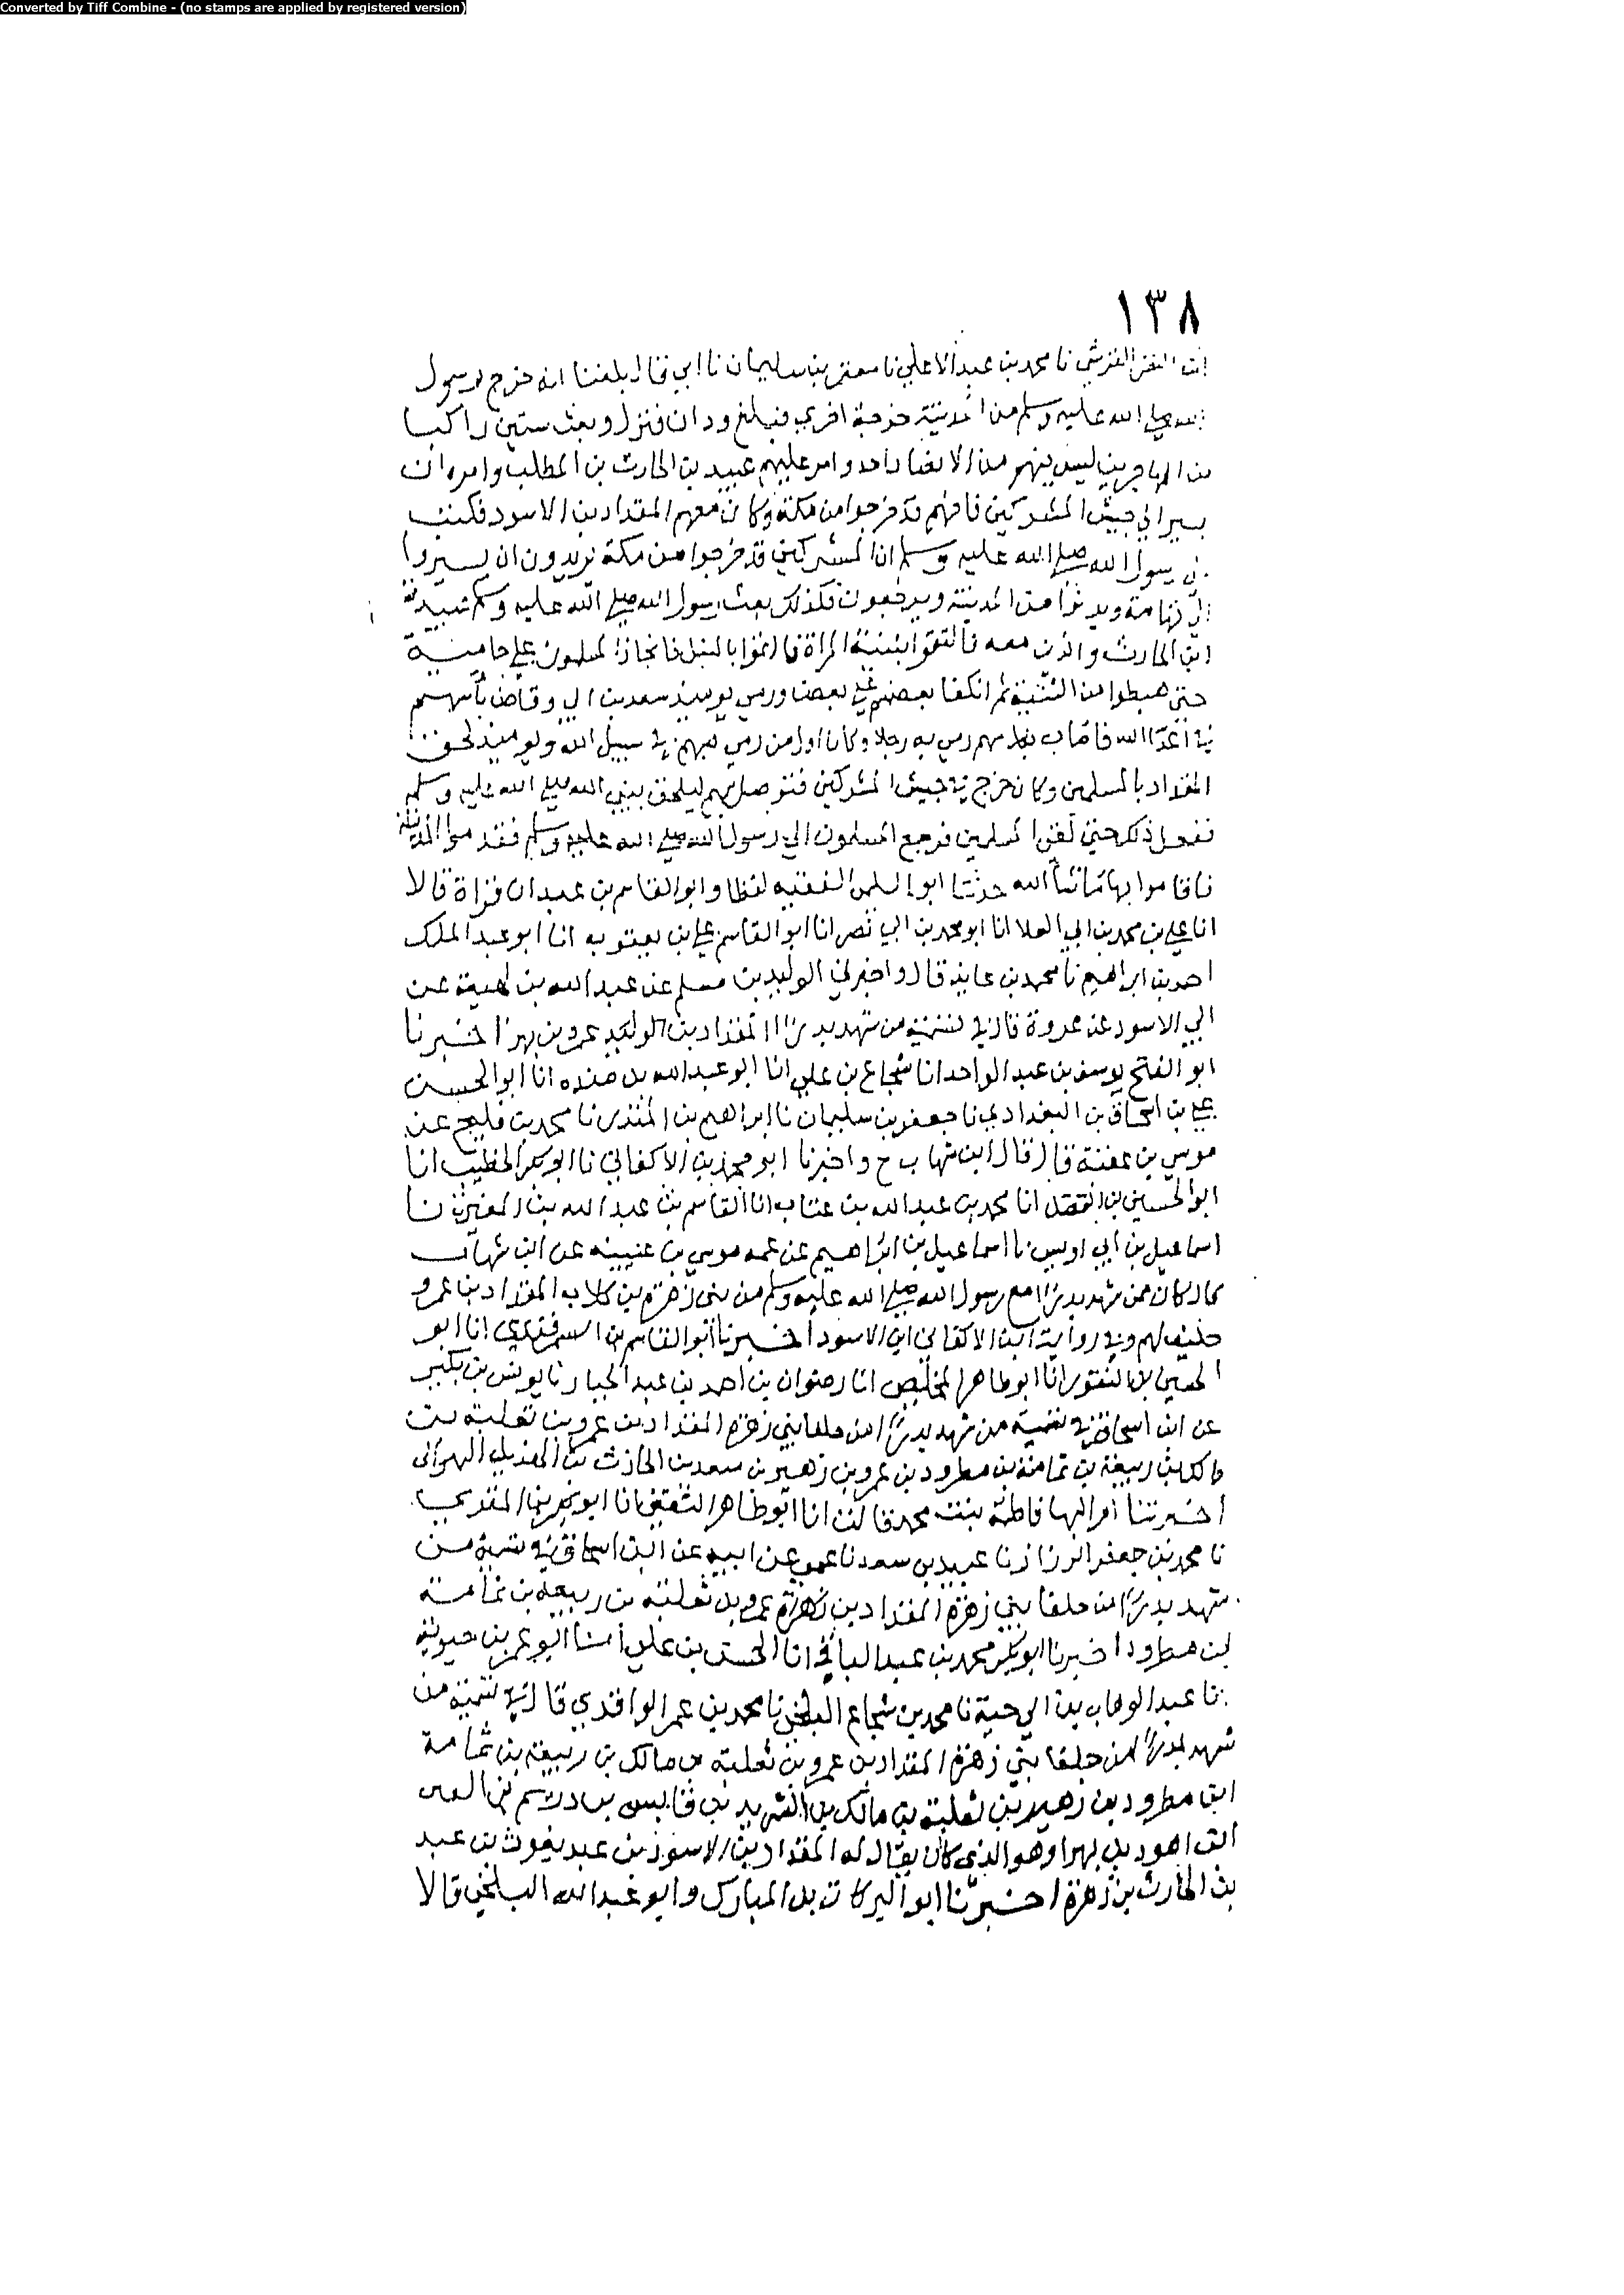 Converted by Tiff Combine - (no stamps are applied by registered version)
١٣٨
القرشي نا محمد بن عبد الاعلى نا معتمر بن سليمان نا ابي قال بلغنا انه خرج رسول
الله صلى الله عليه وسلم من المدينة خرجة اخرى فبلغ ودان فنزل وبعث ستين راكبا
من المهاجرين ليس فيهم من الانصار احد وامر عليهم عبيد بن الحارث بن المطلب وامره ان
يسير الى جيش المشركين فانهم قد خرجوا من مكة وكان معهم المقداد بن الاسود فكتب
رسول الله صلى الله عليه وسلم ان المشركين قد خرجوا من مكة يريدون ان يسيروا
الى تهامة ويدنوا من المدينة ويرجعون فكذلك بعث رسول الله صلى الله عليه وسلم عبيدة
ابن الحارث والذين معه فالتقوا بثنية المراة فارتموا بالنبل فانحاز المسلمون على حامية
حتى هبطوا من الثنية ثم انكفا بعضهم على بعض ورمى يومئذ سعد بن ابي وقاص باسهم
في اعداء الله فاصاب بكل سهم رمى به رجلا وكان اول من رمى بسهم في سبيل الله ويومئذ لحق
المقداد بالمسلمين وكان خرج في جيش المشركين فتوصل بهم ليلحق بنبي الله صلى الله عليه وسلم
ففعل ذلك حتى لقي المسلمين فرجع المسلمون الى رسول الله صلى الله عليه وسلم فقدموا المدينة
فاقاموا بها ما شاء الله حدثنا ابو الحسن الفقيه لفظا وابو القاسم بن عبدان قراة قالا
انا علي بن محمد بن ابي العلا انا ابو محمد بن ابي نصر انا ابو القاسم علي بن يعقوب انا ابو عبد الملك
احمد بن ابراهيم نا محمد بن عايذ قال واخبرني الوليد بن مسلم عن عبد الله بن لهيعة عن
ابي الاسود عن عروة قال في تسمية من شهد بدرا المقداد بن عمرو بن بهرا اخبرنا
ابو الفتح يوسف بن عبد الواحد انا شجاع بن علي انا ابو عبد الله بن منده انا ابو الحسن
علي بن اسحاق بن البغدادي نا جعفر بن سليمان نا ابراهيم بن المنذر نا محمد بن فليح عن
موسى بن عقبة قال قال ابن شهاب ح واخبرنا ابو محمد بن الاكفاني نا ابو بكر الخطيب انا
ابو الحسين بن الفضل انا محمد بن عبد الله بن عتاب انا القاسم بن عبد الله بن المغيرة نا
اسماعيل بن ابي اويس نا اسماعيل بن ابراهيم عن عمه موسى بن عقبة عن ابن شهاب
قال كان ممن شهد بدرا مع رسول الله صلى الله عليه وسلم من بني زهرة بن كلاب المقداد بن عمرو
حليف لهم وفي رواية ابن الاكفاني ابن الاسود اخبرنا ابو القاسم بن السمرقندي انا ابو
الحسين بن النقور انا ابو طاهر المخلص انا رضوان بن احمد بن عبد الجبار نا يونس بن بكير
عن ابن اسحاق في تسمية من شهد بدرا من حلفا بني زهرة المقداد بن عمرو بن ثعلبة بن
مالك بن ربيعة بن ثمامة بن مطرود بن عمرو بن زهير بن سعد بن الحارث بن الهذيل البهراني
اخبرتنا ام البها فاطمة بنت محمد قالت انا ابو طاهر الثقفي انا ابو بكر بن المقري
نا محمد بن جعفر الزراد نا عبيد بن سعد نا عمي عن ابيه عن ابن اسحاق في تسمية من
شهد بدرا من حلفا بني زهرة المقداد بن زهرة عمرو بن ثعلبة بن ربيعة بن ثمامة
بن مطرود اخبرنا ابو بكر محمد بن عبد الباقي انا الحسن بن علي انا ابو عمر بن حيوية
نا عبد الوهاب بن ابي حية نا محمد بن شجاع البلخي نا محمد بن عمر الواقدي قال في تسمية من
شهد بدرا من حلفا بني زهرة المقداد بن عمرو بن ثعلبة بن مالك بن ربيعة بن ثمامة
ابن مطرود بن زهير بن ثعلبة بن مالك بن الشريد بن قابس بن دريم بن القين
ابن اهود بن بهرا وهو الذي كان يقال له المقداد بن الاسود بن عبد يغوث بن عبد
بن الحارث بن زهرة اخبرنا ابو البركات بن المبارك وابو عبد الله البلخي قالا